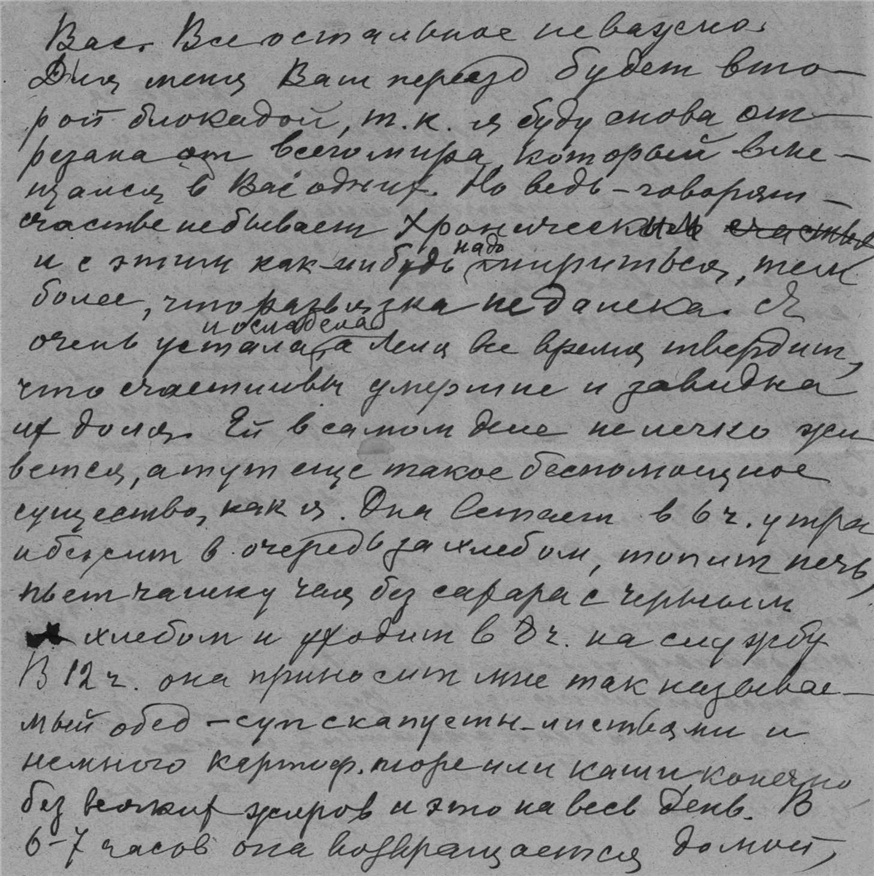 Вас. Все остальное неважно.
Для меня Ваш переезд будет вто-
рой блокадой, т.к. я буду снова от-
резана от всего мира, который вме-
щался в Вас одних. Но ведь – говорят –
счастье не бывает хроническим счастье
и с этим как-нибудь надо мириться, тем
более, что развязка недалека. Я
очень устала, ослабела, а Леля все время твердит,
что счастливы умершие и завидна
их доля. Ей в самом деле нелегко жи
вется, а тут еще такое беспомощное
существо, как я. Она встает в 6 ч. утра
и бежит в очередь за хлебом, топит печь,
пьет чашку чая без сахара с черным
хлебом и уходит в 8 ч. на службу
В 12 ч. она приносит мне так называе-
мый обед – суп с капустн. листьями и
немного картоф. пюре или каши конечно
без всяких жиров и это на весь день. В
6-7 часов она возвращается домой,